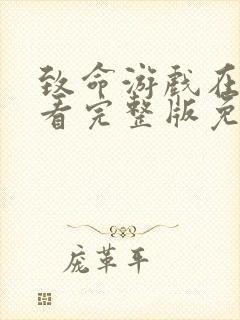 致命游戏在
看完整版免
庞革平